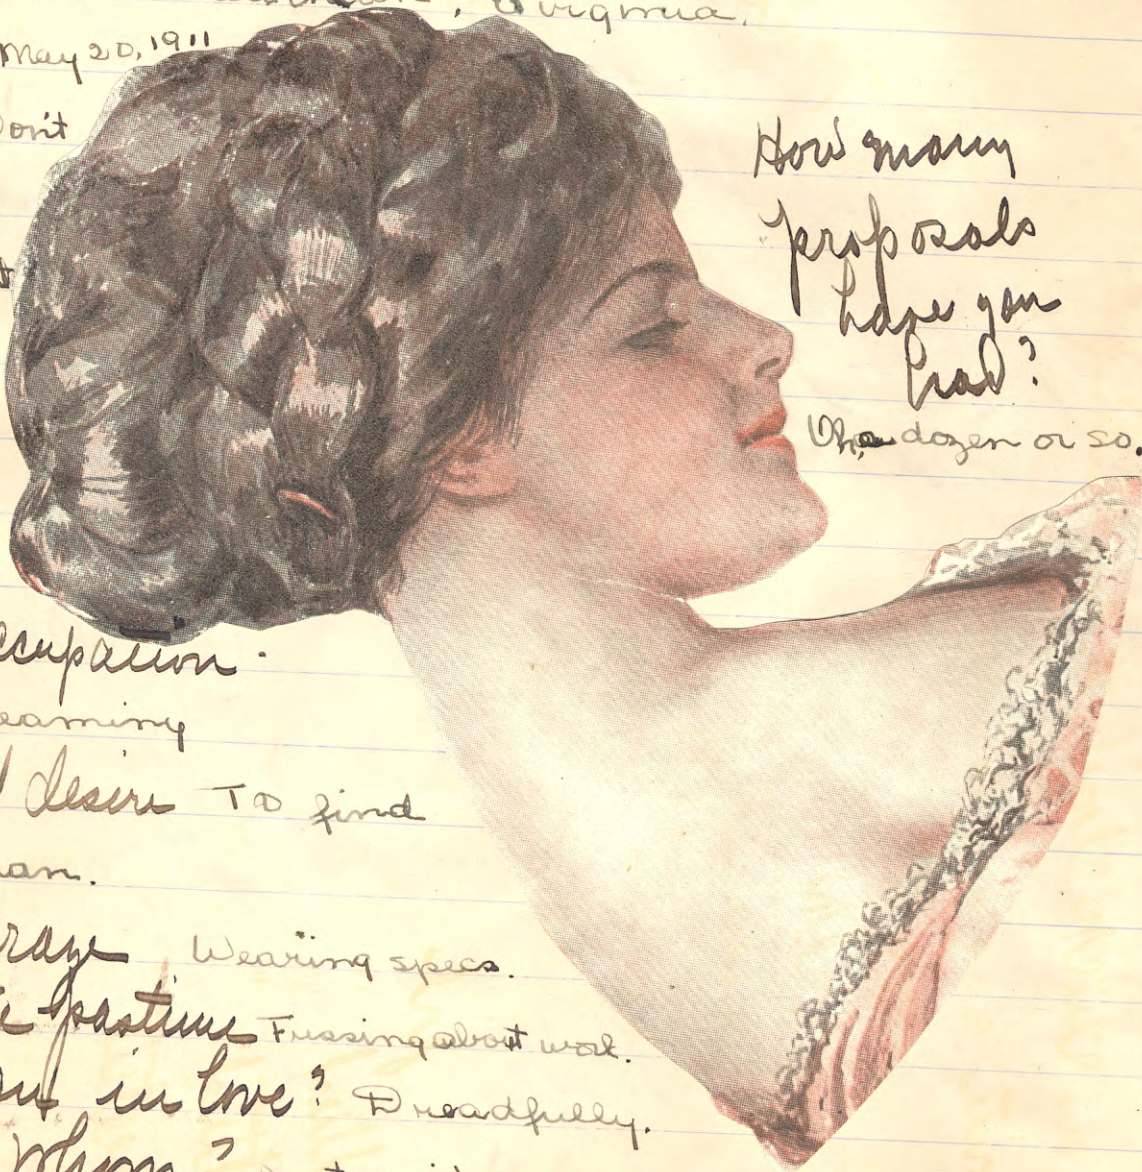 Virginia.
May 20, 1911
Don't
How many
proposals
have you
had?
Oh, a dozen or so.
ccupation
eaming
desire To find
an.
raze Wearing specs.
e pastime Fussing about work.
ou in love? Dreadfully.
Whom?